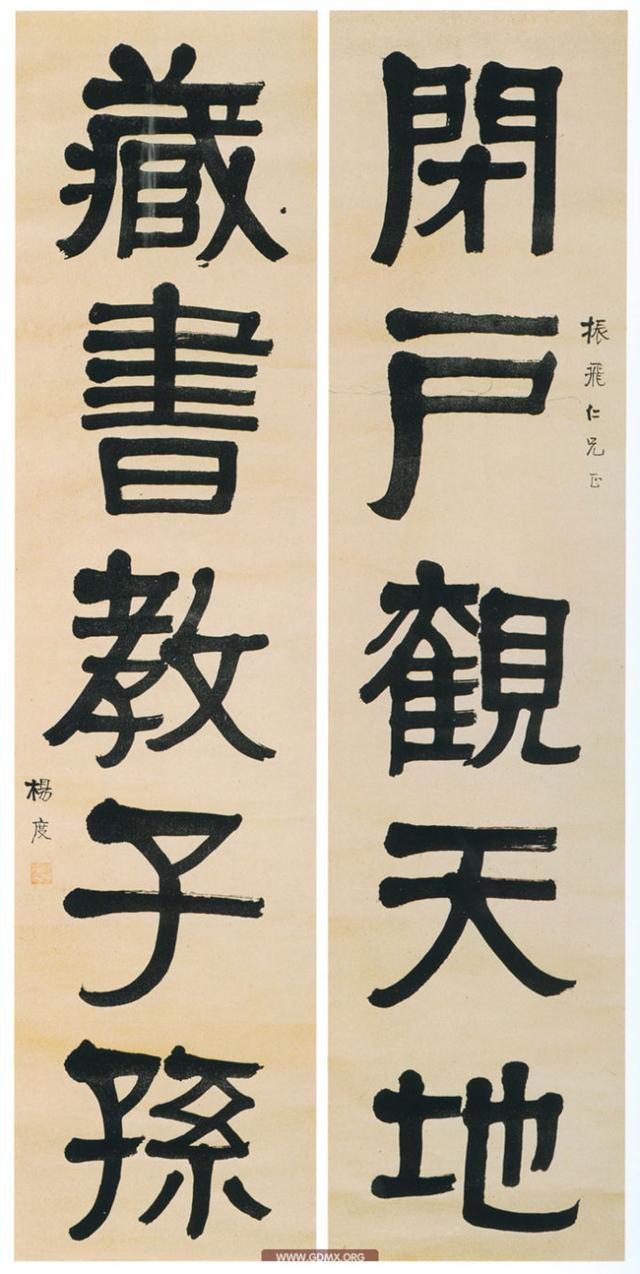 閉戸觀天地
振飛仁兄正
藏書教子孫
楊度
WWW.GDMX.ORG